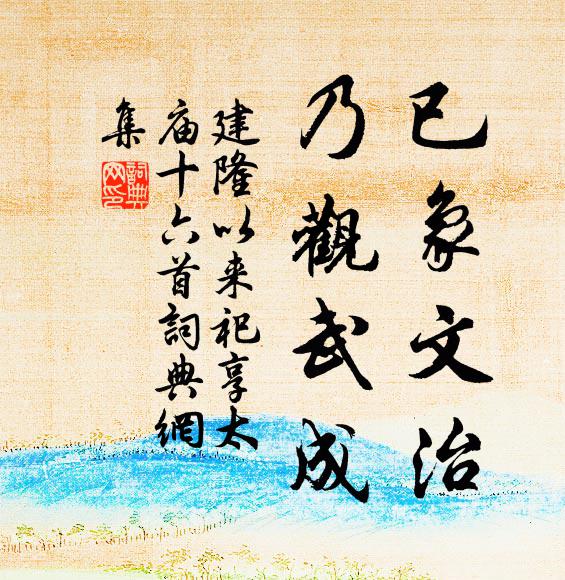 已象文治
乃觀武成
建隆以来祀享太
庙十六首詞典網
集
詞典网印